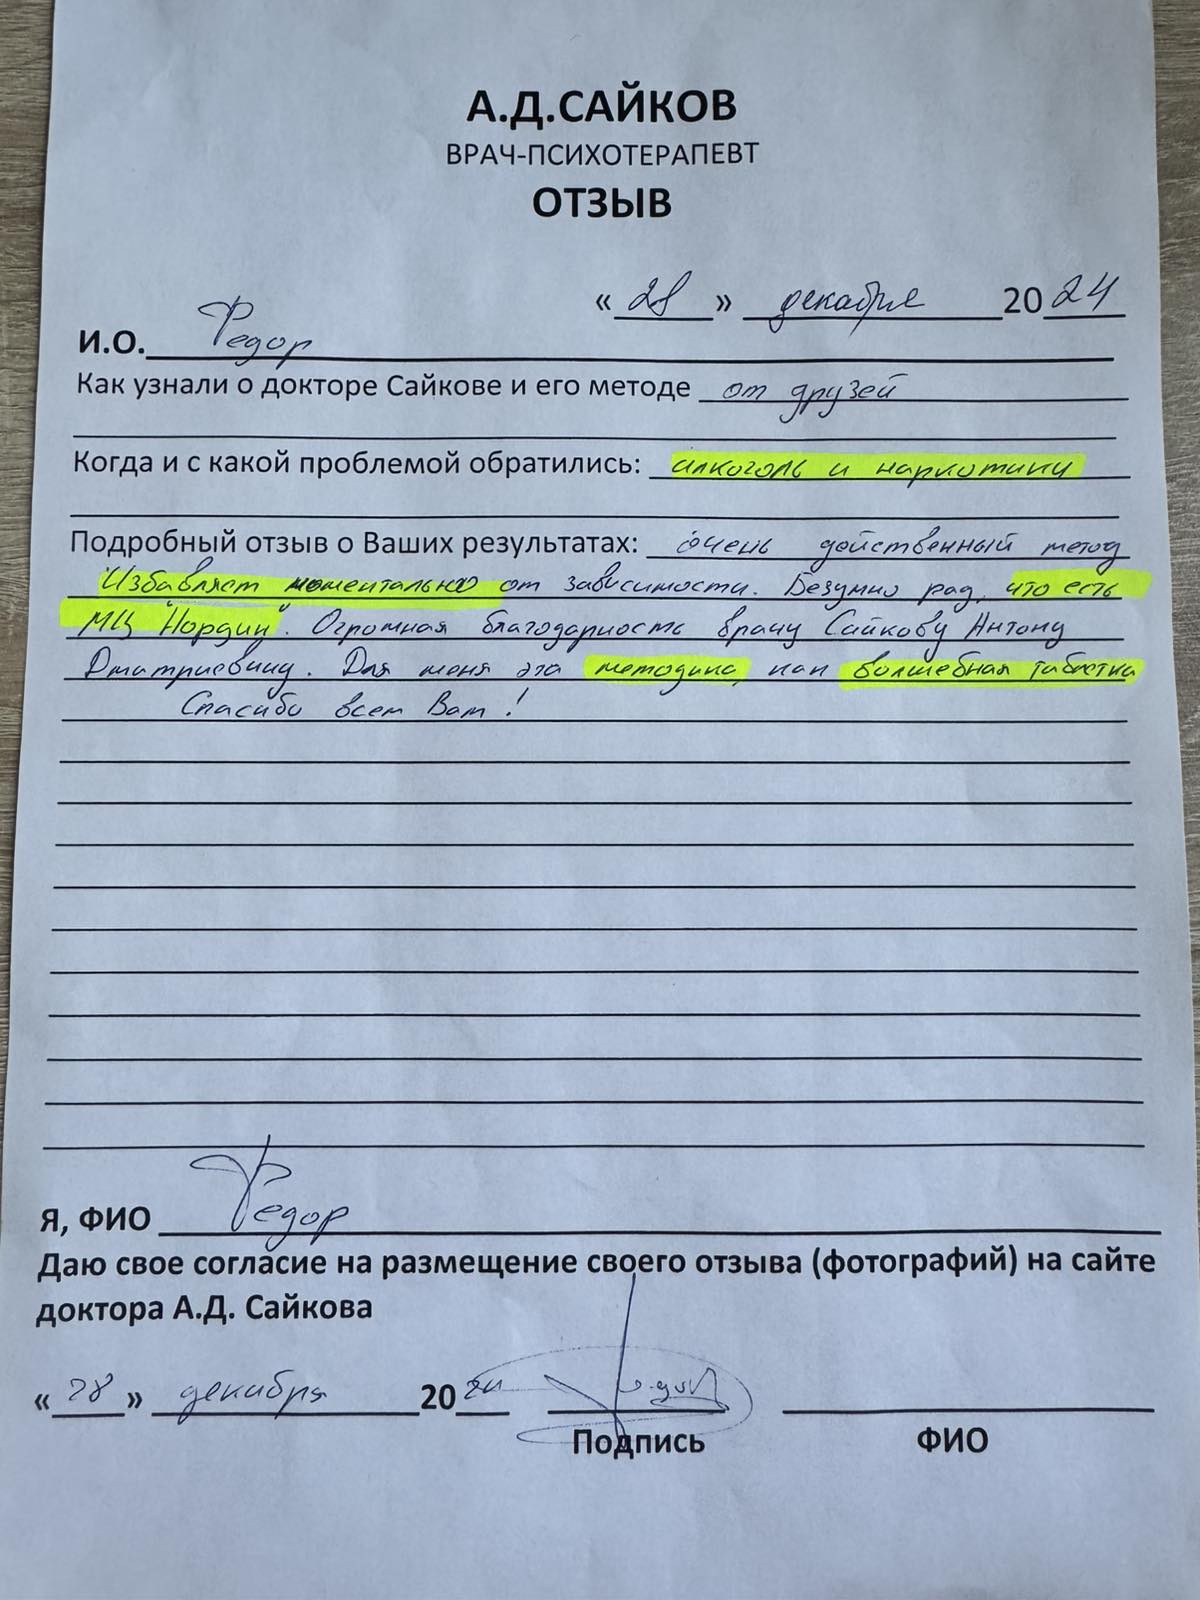 А.Д.САЙКОВ
ВРАЧ-ПСИХОТЕРАПЕВТ
ОТЗЫВ
« 28 » декабря 2024
И.О. Федор
Как узнали о докторе Сайкове и его методе от друзей
Когда и с какой проблемой обратились: алкоголь и наркотики
Подробный отзыв о Ваших результатах: очень действенный метод
Избавляет моментально от зависимости. Безумно рад, что есть
МЦ "Нордин". Огромная благодарность врачу Сайкову Антону
Дматриевичу. Для меня эта методика, как волшебная таблетка
Спасибо всем Вам!
Я, ФИО Федор
Даю свое согласие на размещение своего отзыва (фотографий) на сайте
доктора А.Д. Сайкова
« 28 » декабря 2024
Подпись ФИО